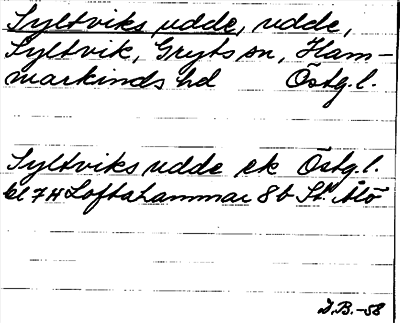 Syltviks udde, udde,
Syltvik, Gryts sn, Ham-
markinds hd Östg.l.
Syltviks udde ek Östg.l.
bl 7H Loftahammar 8b St. Ålö
D.B.-58